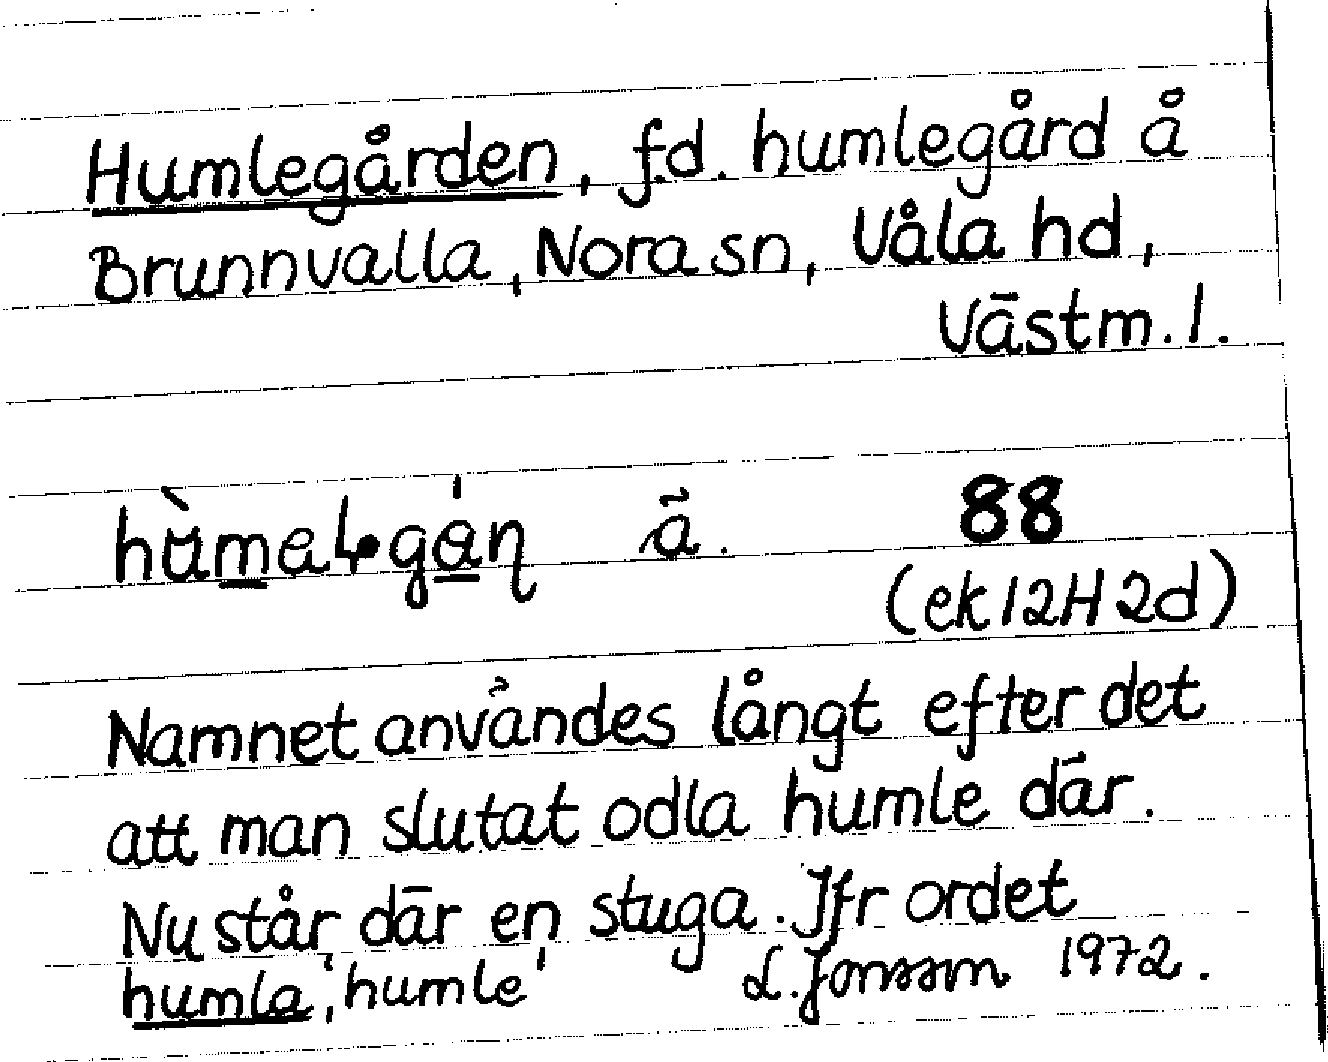 Humlegården, f.d. humlegård å
Brunnvalla, Nora sn, Våla hd,
Västm. l.
ä. 88
(ek 12H 2d)
Namnet användes långt efter det
att man slutat odla humle där.
Nu står där en stuga. Jfr ordet
humla, 'humle' L. Jonsson 1972.